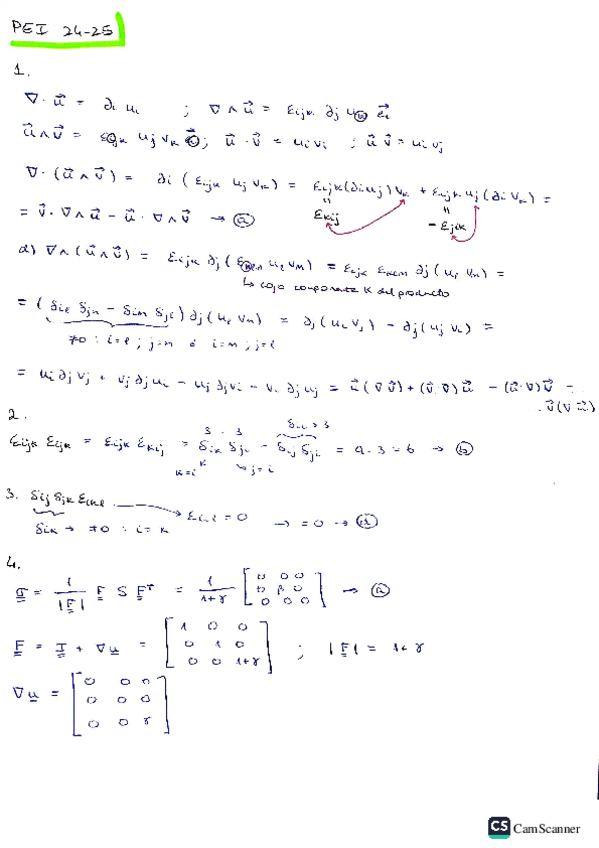 PEI 24-25
1.
∇·u⃗ = ∂i ui ; ∇∧u⃗ = εijk ∂j uk e⃗i
u⃗∧v⃗ = εijk uj vk e⃗i ; u⃗·v⃗ = ui vi ; u⃗ v⃗ = ui vj
∇·(u⃗∧v⃗) = ∂i (εijk uj vk) = εijk(∂i uj)vk + εijk uj (∂i vk) =
εkij
- εjik
= v⃗·∇∧u⃗ - u⃗·∇∧v⃗ → a
d) ∇∧(u⃗∧v⃗) = εijk ∂j (εkem ue vm) = εijk εkem ∂j (ue vm) =
↳ cojo componente K del producto
= (δie δjm - δim δje) ∂j (ue vm) = ∂j (ui vj) - ∂j (uj vi) =
≠0 : i=e ; j=m ó i=m ; j=e
= ui ∂j vj + vj ∂j ui - uj ∂j vi - vi ∂j uj = u⃗(∇v⃗) + (v⃗·∇)u⃗ - (u⃗·∇)v⃗ -
- v⃗(∇u⃗)
2.
3 · 3
δii = 3
εijk εijk = εijk εkij = δik δji - δij δji = 9-3 = 6 → b
k=i
j=i
3. δij δjk εike
εiie = 0 → = 0 → d
δik → ≠0 : i=k
4.
σ = 1/|F| F S Fᵀ = 1/1+γ [0 0 0
0 β 0
0 0 0] → a
F = I + ∇u = [1 0 0
0 1 0
0 0 1+γ] ; |F| = 1+γ
∇u = [0 0 0
0 0 0
0 0 γ]
CS CamScanner